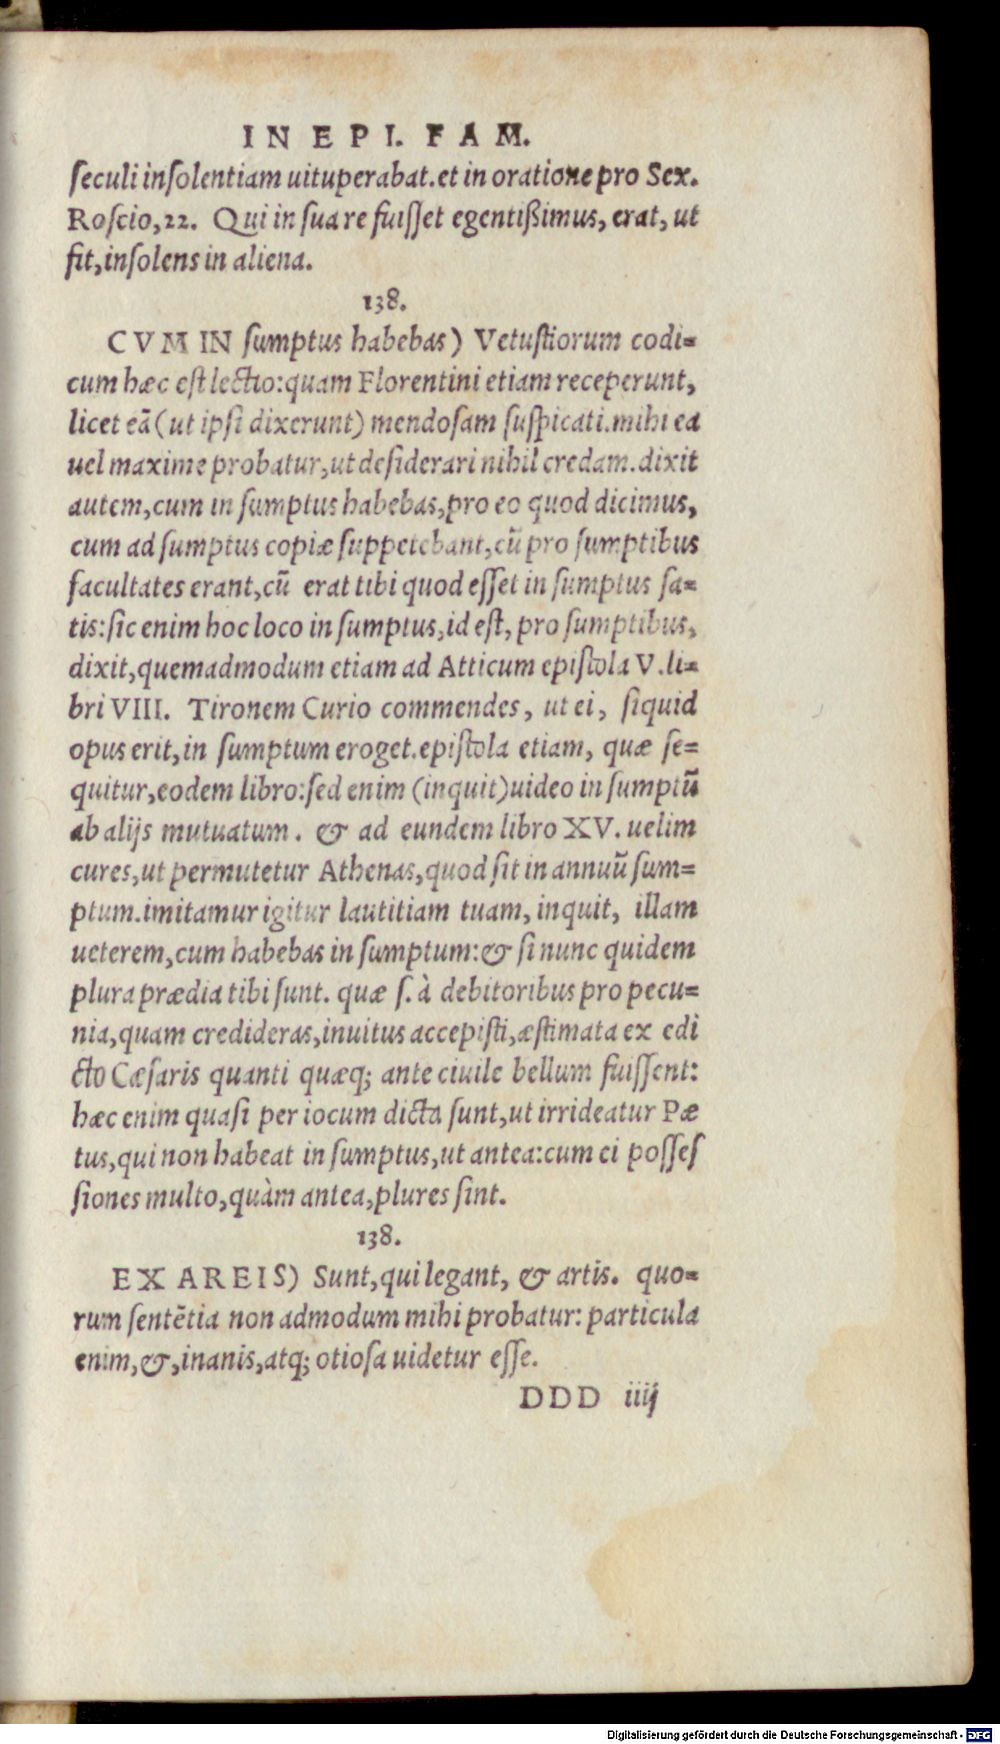 IN EPI. FAM.
ſeculi inſolentiam uituperabat. et in oratione pro Sex.
Roſcio, 22. Qui in ſua re fuiſſet egentiſſimus, erat, ut
fit, inſolens in aliena.
138.
CVM IN ſumptus habebas) Vetuſtiorum codi=
cum hæc eſt lectio: quam Florentini etiam receperunt,
licet eā (ut ipſi dixerunt) mendoſam ſuſpicati. mihi ea
uel maxime probatur, ut deſiderari nihil credam. dixit
autem, cum in ſumptus habebas, pro eo quod dicimus,
cum ad ſumptus copiæ ſuppetebant, cū pro ſumptibus
facultates erant, cū erat tibi quod eſſet in ſumptus ſa=
tis: ſic enim hoc loco in ſumptus, id eſt, pro ſumptibus,
dixit, quemadmodum etiam ad Atticum epiſtola V. li=
bri VIII. Tironem Curio commendes, ut ei, ſiquid
opus erit, in ſumptum eroget. epiſtola etiam, quæ ſe=
quitur, eodem libro: ſed enim (inquit) uideo in ſumptū
ab alijs mutuatum. & ad eundem libro XV. uelim
cures, ut permutetur Athenas, quod ſit in annuū ſum=
ptum. imitamur igitur lautitiam tuam, inquit, illam
ueterem, cum habebas in ſumptum: & ſi nunc quidem
plura prædia tibi ſunt. quæ ſ. à debitoribus pro pecu=
nia, quam credideras, inuitus accepiſti, æſtimata ex edi
cto Cæſaris quanti quæq; ante ciuile bellum fuiſſent:
hæc enim quaſi per iocum dicta ſunt, ut irrideatur Pæ
tus, qui non habeat in ſumptus, ut antea: cum ei poſſeſ
ſiones multo, quàm antea, plures ſint.
138.
EX AREIS) Sunt, qui legant, & artis. quo=
rum ſentētia non admodum mihi probatur: particula
enim, &, inanis, atq; otioſa uidetur eſſe.
DDD iiij
Digitalisierung gefördert durch die Deutsche Forschungsgemeinschaft - DFG